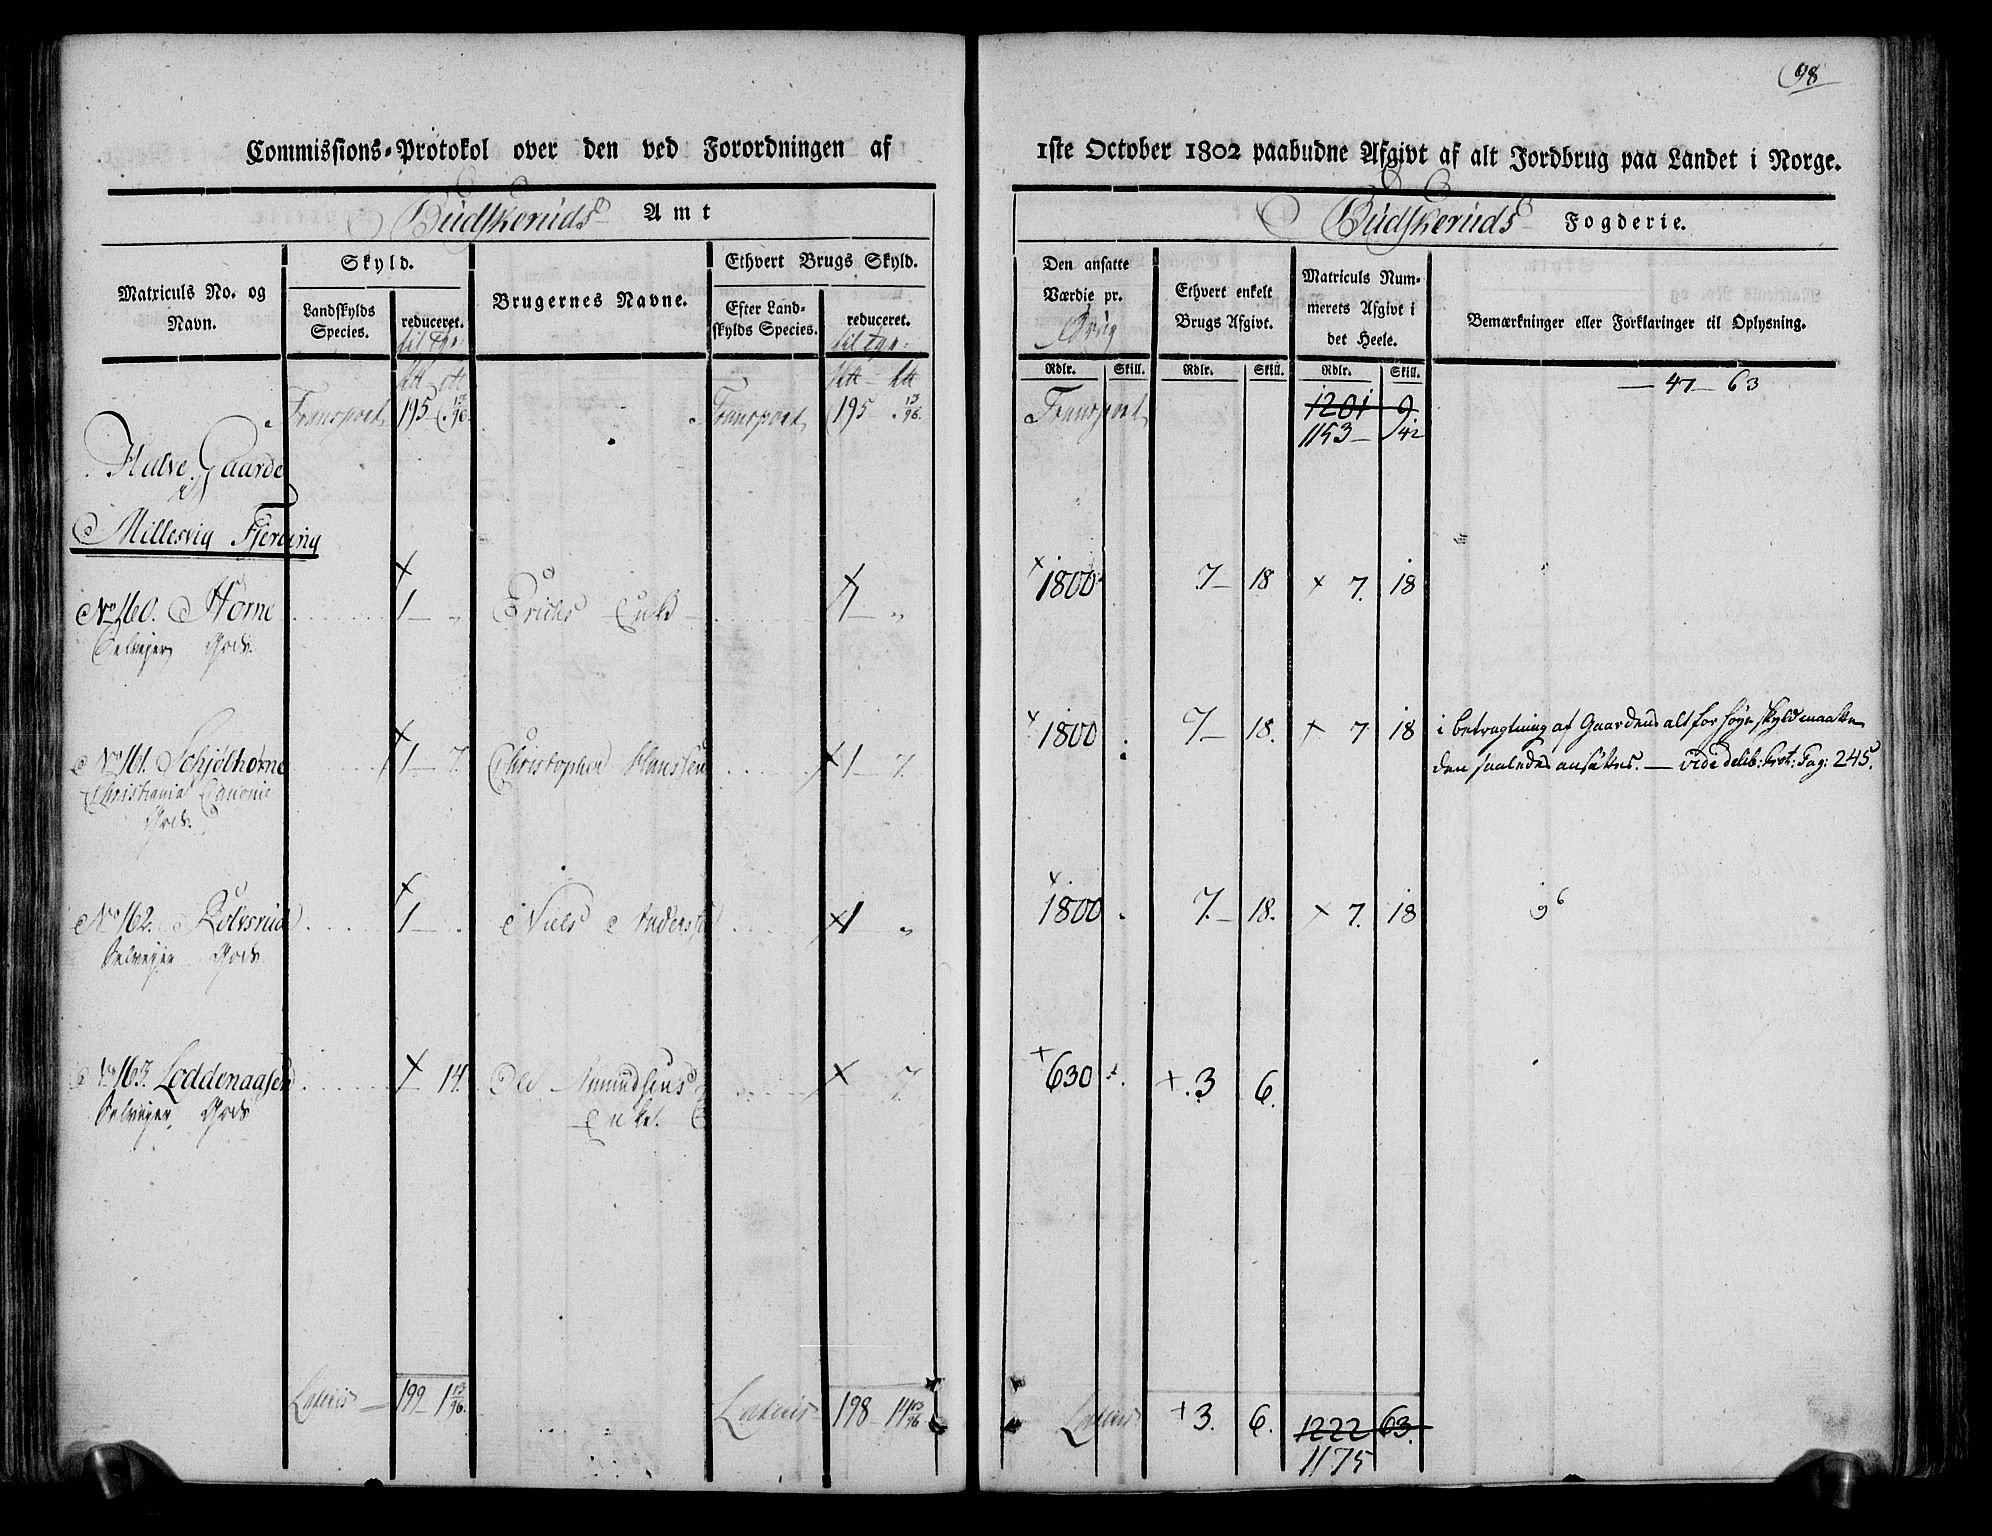 98
Commissions-Protokol over den ved Forordningen af
Budskeruds Amt
Matriculs No. og Navn.
Skyld.
Landskylds Species.
reduceret.
til Tyr:
Brugernes Navne.
Ethvert Brugs Skyld.
Efter Landskylds Species.
reduceret.
til tyr:
Transport 195 13/96. Transport 195 13/96.
Halve Gaarde
i
Millesvig Fjerding
No 160. Horne 1 — „ Erichs Enke 1 — „
Selvejer Gods.
No 161. Schjølhorne 1 — 7. Christopher Hanssen 1 — 7.
Christiania
Gods.
No 162. Rolvsrud 1 — . Niels Anderssen 1 „
Selvejer Gods
No 163. Loddenaasen — 14. Ole Amundsens 7.
Selvejer Gods Enke.
Lateris 199 — 1 13/96. Lateris 198 — 14 13/96
1ste October 1802 paabudne Afgivt af alt Jordbrug paa Landet i Norge.
Budskeruds Fogderie.
Den ansatte Værdie pr.
Brug
Ethvert enkelt Brugs Afgivt.
Matriculs Nummerets Afgivt i det Heele.
Bemærkninger eller Forklaringer til Oplysning.
Rdlr. Skill. Rdlr. Skill. Rdlr. Skill.
— 47 — 63
Transport 1201 9.
1153 — 42
1800 7 — 18 7. 18
1800 7 — 18. 7 18 i betragtning af Gaardens alt for høye skyld maatte
den saaledes ansættes. — vide delib: Prot: Pag: 245.
1800 7. — 18. 7. 18
630 3 6.
Lateris 3. 6. 1222 63.
1175